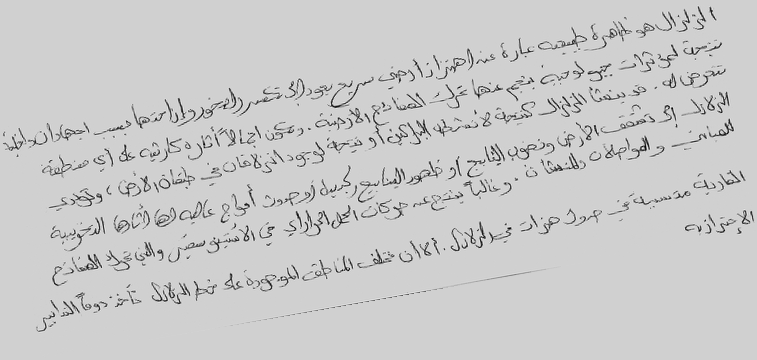 الزلزال هو ظاهرة طبيعية عبارة عن اهتزاز أرضي سريع يعود إلى تكسر الصخور وإزاحتها بسبب اجهادات داخلية
نتيجة لمؤثرات جيولوجية ينجم عنها تحرك الصفائح الأرضية. وتكون اجمالاً آثاره كارثية على أي منطقة
تتعرض له. قد ينشأ الزلزال كنتيجة لأنشطة البراكين أو نتيجة لوجود انزلاقات في طبقات الأرض، وتؤدي
الزلازل إلى تشقق الأرض ونضوب الينابيع أو ظهور الينابيع الجديدة أو حدوث أمواج عالية لها آثارها التخريبية
للمباني والمواصلات والمنشآت. وغالباً ينتج عن حركات الحمل الحراري في الأستينوسفير والتي تحرك الصفائح
القارية متسببة في حدوث هزات هي الزلازل. الا ان مختلف المناطق الموجودة على خط الزلازل تأخذ دوماً التدابير
الإحترازيه